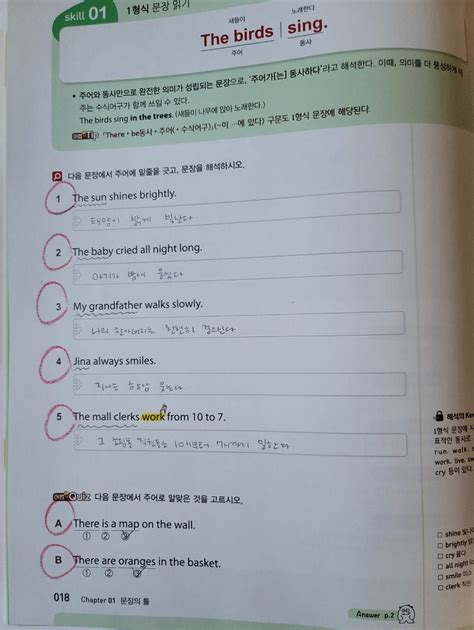 skill 01 1형식 문장 읽기
새들이 노래한다
The birds sing.
주어 동사
• 주어와 동사만으로 완전한 의미가 성립되는 문장으로, '주어가[는] 동사하다'라고 해석한다. 이때, 의미를 더 풍성하게 해
주는 수식어구가 함께 쓰일 수 있다.
The birds sing in the trees. (새들이 나무에 앉아 노래한다.)
Tip 「There + be동사 + 주어(+ 수식어구),(~이 …에 있다) 구문도 1형식 문장에 해당된다.
다음 문장에서 주어에 밑줄을 긋고, 문장을 해석하시오.
1 The sun shines brightly.
태양이 밝게 빛난다
2 The baby cried all night long.
아기가 밤새 울었다
3 My grandfather walks slowly.
나의 할아버지는 천천히
4 Jina always smiles.
지나는 항상 웃는다
5 The mall clerks work from 10 to 7.
그 직원들은 10시부터 7시까지 일한다
Quiz 다음 문장에서 주어로 알맞은 것을 고르시오.
A There is a map on the wall.
① ② ③
B There are oranges in the basket.
① ② ③
해석의 Key
1형식 문장에 
표적인 동사로
run, walk,
work, live,
cry 등이 있다.
□ shine 빛나
□ brightly 밝
□ cry 울다
□ all night lo
□ smile 미소
□ clerk 직원
018 Chapter 01 문장의 틀
Answer p.2